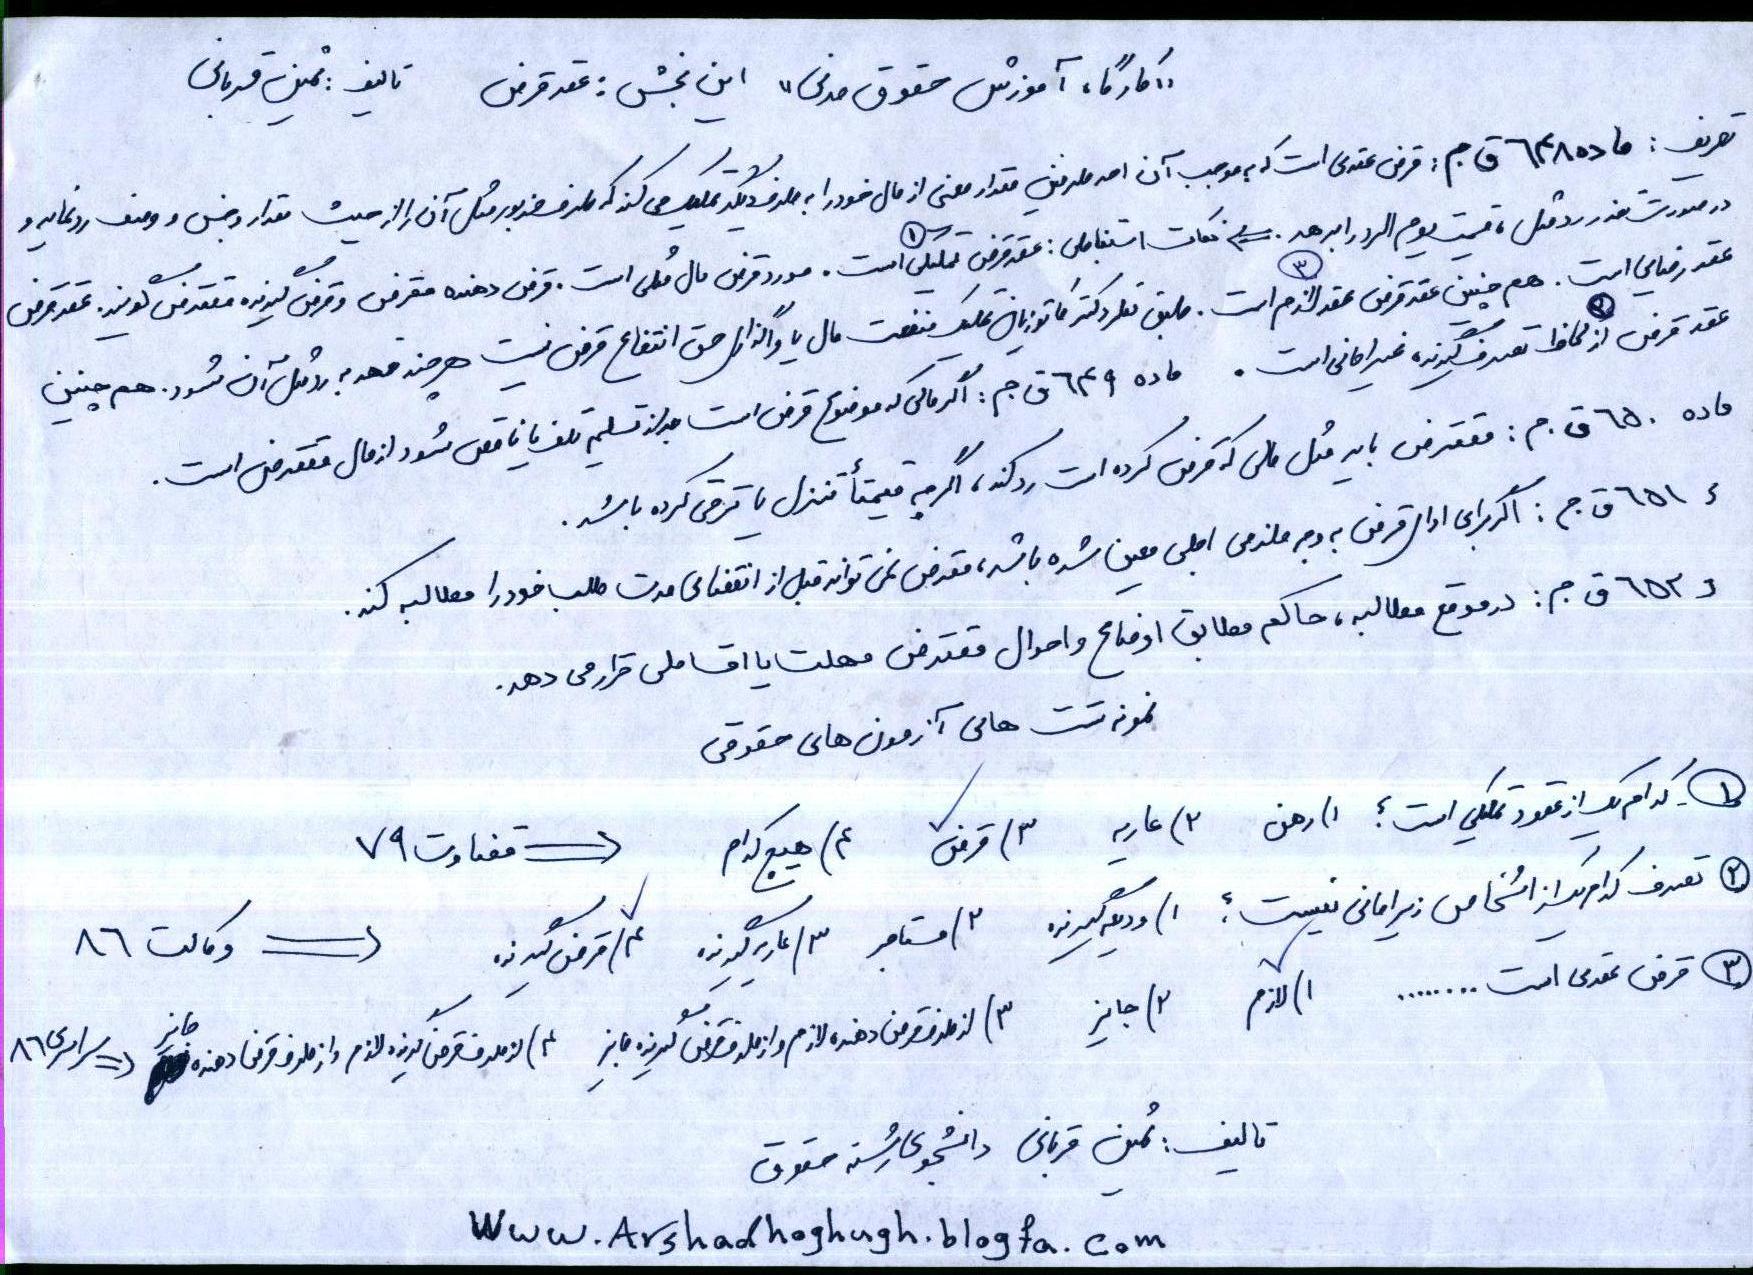 «کارگاه آموزش حقوق مدنی» این بخش: عقد قرض تالیف: ثمین قربانی
تعریف: ماده ٦۴٨ ق م: قرض عقدی است که به موجب آن احد طرفین مقدار معینی از مال خود را به طرف دیگر تملیک می کند که طرف مزبور مثل آن را از حیث مقدار و جنس و وصف رد نماید و
در صورت تعذر رد مثل، قیمت یوم الرد را بدهد. نکات استنباطی: عقد قرض تملیکی ① است. مورد قرض مال مثلی است. قرض دهنده مقرض و قرض گیرنده مقترض گویند. عقد قرض
عقد رضایی است. هم چنین عقد قرض عقد لازم ③ است. طبق نظر دکتر کاتوزیان تملیک منفعت مال یا واگذاری حق انتفاع قرض نیست هر چند تعهد به رد مثل آن شود. هم چنین
عقد قرض از لحاظ ② تصرف گیرنده غیر امانی است. ماده ٦۴٩ ق م: اگر مالی که موضوع قرض است بعد از تسلیم تلف یا ناقص شود از مال مقترض است.
ماده ٦۵٠ ق م: مقترض باید مثل مالی که قرض کرده است رد کند، اگر چه قیمتاً تنزل یا ترقی کرده باشد.
ء ٦۵١ ق م: اگر برای ادای قرض به وجه ملزمی اجلی معین شده باشد، مقرض نمی تواند قبل از انقضای مدت طلب خود را مطالبه کند.
ء ٦۵٢ ق م: در موقع مطالبه، حاکم مطابق اوضاع و احوال مقترض مهلت یا اقساطی قرار می دهد.
نمونه تست های آزمون های حقوقی
① کدام یک از عقود تملیکی است؟ ١) رهن ٢) عاریه ٣) قرض ۴) هیچ کدام قضاوت ٧٩
② تصرف کدام یک از اشخاص زیر امانی نیست؟ ١) ودیعه گیرنده ٢) مستاجر ٣) عاریه گیرنده ۴) قرض گیرنده وکالت ٨٦
③ قرض عقدی است ........ ١) لازم ٢) جایز ٣) از طرف قرض دهنده لازم و از طرف قرض گیرنده جایز ۴) از طرف قرض گیرنده لازم و از طرف قرض دهنده جایز سراسری ٨٦
تالیف: ثمین قربانی دانشجوی رشته حقوق
www.Arshadhoghugh.blogfa.com